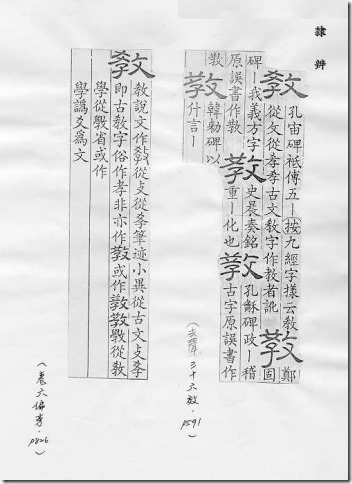 隷辨
敎
孔宙碑祗傅五丨按九經字樣云敎
從攵從孝孝古文敎字作教者訛
敎
鄭固
碑丨我義方字
原誤書作敎
敎
史晨奏銘
重丨化也
敎
孔龢碑政丨稽
古字原誤書作
敎
敎
韓勑碑以
什言丨
（去聲 三十六效．p591）
敎
敎說文作從攴從筆迹小異從古文攴
即古敎字俗作孝非亦作敎或作敎敎斅從敎
學從斅省或作
學譌爻爲文
（卷六偏旁．p826）